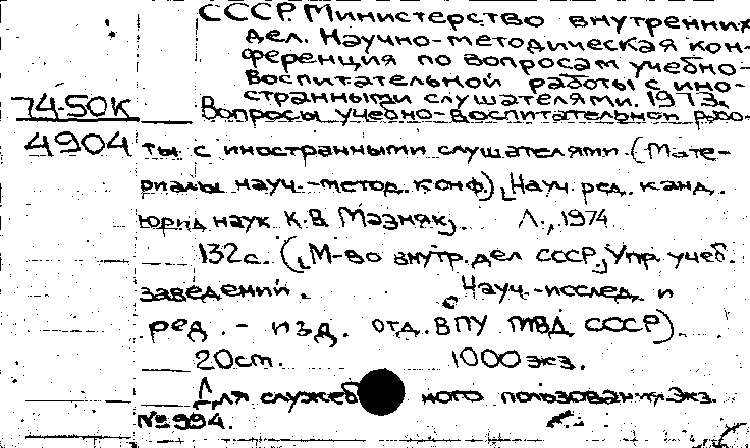 СССР. Министерство внутренних
дел. Научно-методическая кон-
ференция по вопросам учебно-
воспитательной работы с ино-
странными слушателями. 1973.
74-50К Вопросы учебно-воспитательной рабо-
4904 ты с иностранными слушателями. (Мате-
риалы науч.-метод. конф.) [Науч. ред. канд.
юрид. наук К.В. Мазняк]. Л., 1974.
132 с. (М-во внутр. дел СССР, Упр. учеб.
заведений. Науч.-исслед. и
ред.-изд. отд. ВПУ МВД СССР).
20 см. 1000 экз.
Для служебного пользования. Экз.
№ 994.